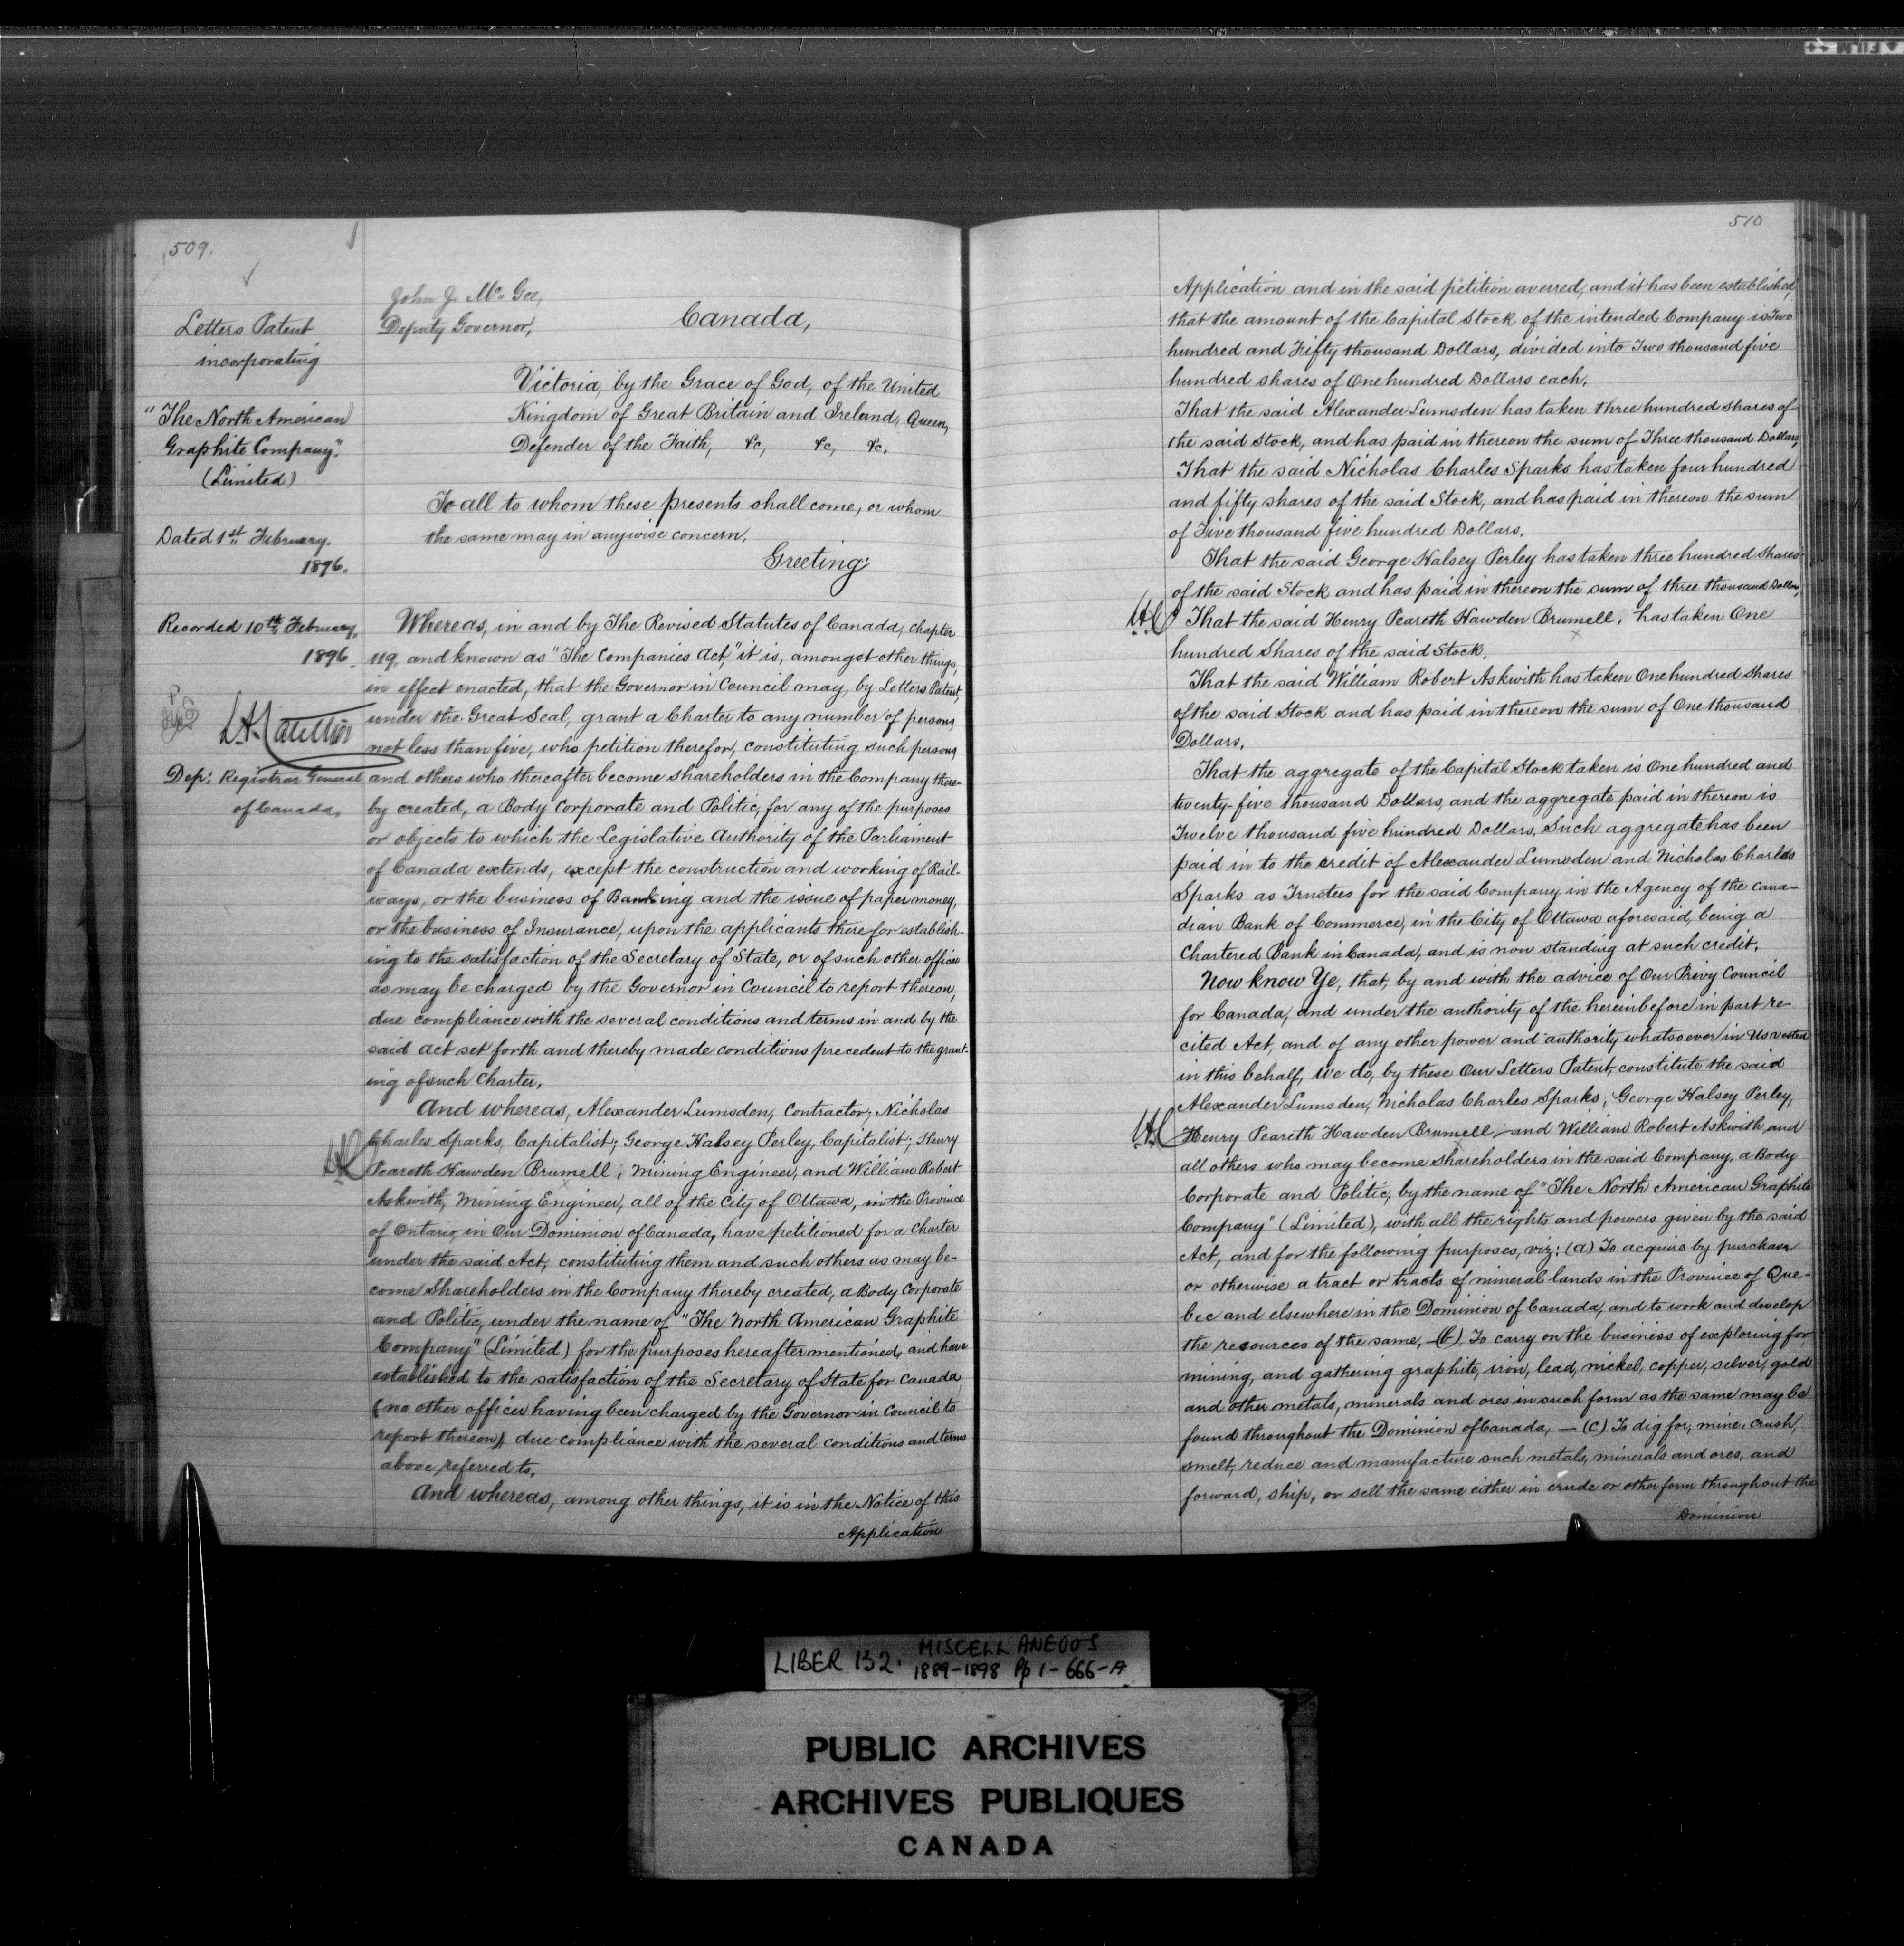 509.
Letters Patent
incorporating
"The North American
Graphite Company"
(Limited)
Dated 1st February.
1896.
Recorded 10th February,
1896.
Dep: Registrar General
of Canada.
John J. McGee,
Deputy Governor,
Canada,
Victoria, by the Grace of God, of the United
Kingdom of Great Britain and Ireland, Queen,
Defender of the Faith, &c, &c, &c.
To all to whom these presents shall come, or whom
the same may in anywise concern,
Greeting:
Whereas, in and by The Revised Statutes of Canada, chapter
119, and known as "The Companies Act," it is, amongst other things,
in effect enacted, that the Governor in Council may, by Letters Patent,
under the Great Seal, grant a Charter to any number of persons,
not less than five, who petition therefor, constituting such persons,
and others who thereafter become shareholders in the Company there-
by created, a Body Corporate and Politic, for any of the purposes
or objects to which the Legislative Authority of the Parliament
of Canada extends, except the construction and working of Rail-
ways, or the business of Banking and the issue of paper money,
or the business of Insurance, upon the applicants therefor establish-
ing to the satisfaction of the Secretary of State, or of such other officer
as may be charged by the Governor in Council to report thereon,
due compliance with the several conditions and terms in and by the
said act set forth and thereby made conditions precedent to the grant-
ing of such Charter.
And whereas, Alexander Lumsden, Contractor; Nicholas
Charles Sparks, Capitalist; George Halsey Perley, Capitalist; Henry
Peareth Hawden Brumell, Mining Engineer, and William Robert
Askwith, Mining Engineer, all of the City of Ottawa, in the Province
of Ontario, in Our Dominion of Canada, have petitioned for a Charter
under the said Act, constituting them and such others as may be-
come Shareholders in the Company thereby created, a Body Corporate
and Politic, under the name of "The North American Graphite
Company" (Limited) for the purposes hereafter mentioned, and have
established to the satisfaction of the Secretary of State for Canada
(no other officer having been charged by the Governor in Council to
report thereon) due compliance with the several conditions and terms
above referred to.
And whereas, among other things, it is in the Notice of this
Application
510
Application and in the said petition averred, and it has been established,
that the amount of the Capital Stock of the intended Company is Two
hundred and Fifty thousand Dollars, divided into Two thousand five
hundred shares of One hundred Dollars each.
That the said Alexander Lumsden has taken three hundred shares of
the said Stock, and has paid in thereon the sum of Three thousand Dollars,
That the said Nicholas Charles Sparks has taken four hundred
and fifty shares of the said Stock, and has paid in thereon the sum
of Five thousand five hundred Dollars.
That the said George Halsey Perley has taken three hundred shares
of the said Stock and has paid in thereon the sum of three thousand Dollars,
That the said Henry Peareth Hawden Brumell, has taken One
hundred Shares of the said Stock.
That the said William Robert Askwith has taken One hundred shares
of the said Stock and has paid in thereon the sum of One thousand
Dollars.
That the aggregate of the Capital Stock taken is One hundred and
twenty-five thousand Dollars, and the aggregate paid in thereon is
Twelve thousand five hundred Dollars. Such aggregate has been
paid in to the credit of Alexander Lumsden and Nicholas Charles
Sparks as Trustees for the said Company in the Agency of the Cana-
dian Bank of Commerce, in the City of Ottawa aforesaid, being a
Chartered Bank in Canada, and is now standing at such credit.
Now know Ye, that, by and with the advice of Our Privy Council
for Canada, and under the authority of the hereinbefore in part re-
cited Act, and of any other power and authority whatsoever in Us vested
in this behalf, We do, by these Our Letters Patent, constitute the said
Alexander Lumsden, Nicholas Charles Sparks, George Halsey Perley,
Henry Peareth Hawden Brumell, and William Robert Askwith and
all others who may become shareholders in the said Company, a Body
Corporate and Politic, by the name of "The North American Graphite
Company" (Limited), with all the rights and powers given by the said
Act, and for the following purposes, viz: (a) To acquire by purchase
or otherwise a tract or tracts of mineral lands in the Province of Que-
bec and elsewhere in the Dominion of Canada, and to work and develop
the resources of the same. — (b). To carry on the business of exploring for,
mining, and gathering graphite, iron, lead, nickel, copper, silver, gold
and other metals, minerals and ores in such form as the same may be
found throughout the Dominion of Canada, — (c) To dig for, mine, crush,
smelt, reduce and manufacture such metals, minerals and ores, and
forward, ship, or sell the same either in crude or other form throughout the
Dominion
LIBER 132. MISCELLANEOUS
1889-1898 Pp 1-666-A
PUBLIC ARCHIVES
ARCHIVES PUBLIQUES
CANADA